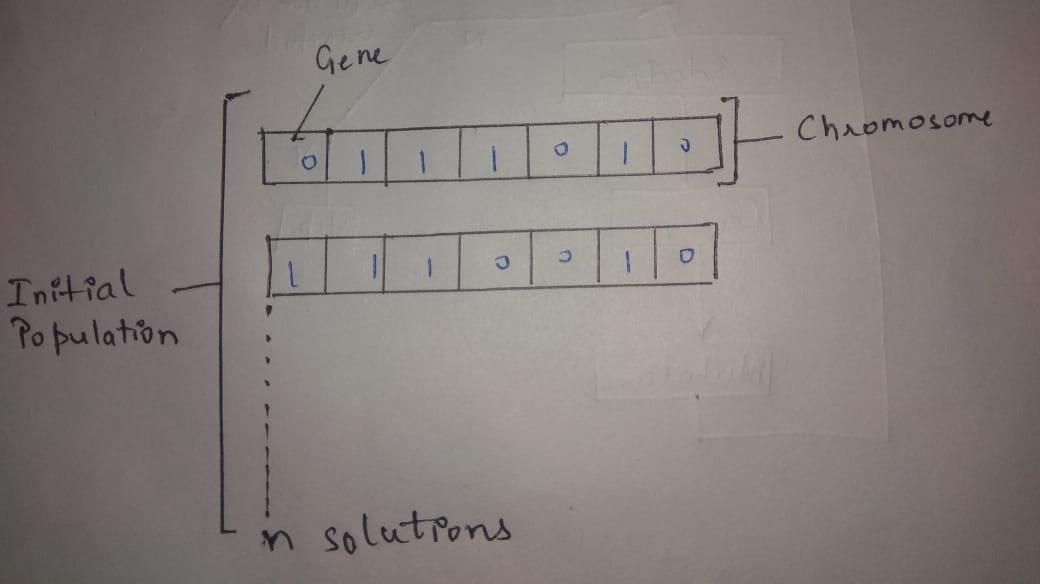 Gene
0 1 1 1 0 1 0
Chromosome
1 1 1 0 0 1 0
Initial
Population
n solutions